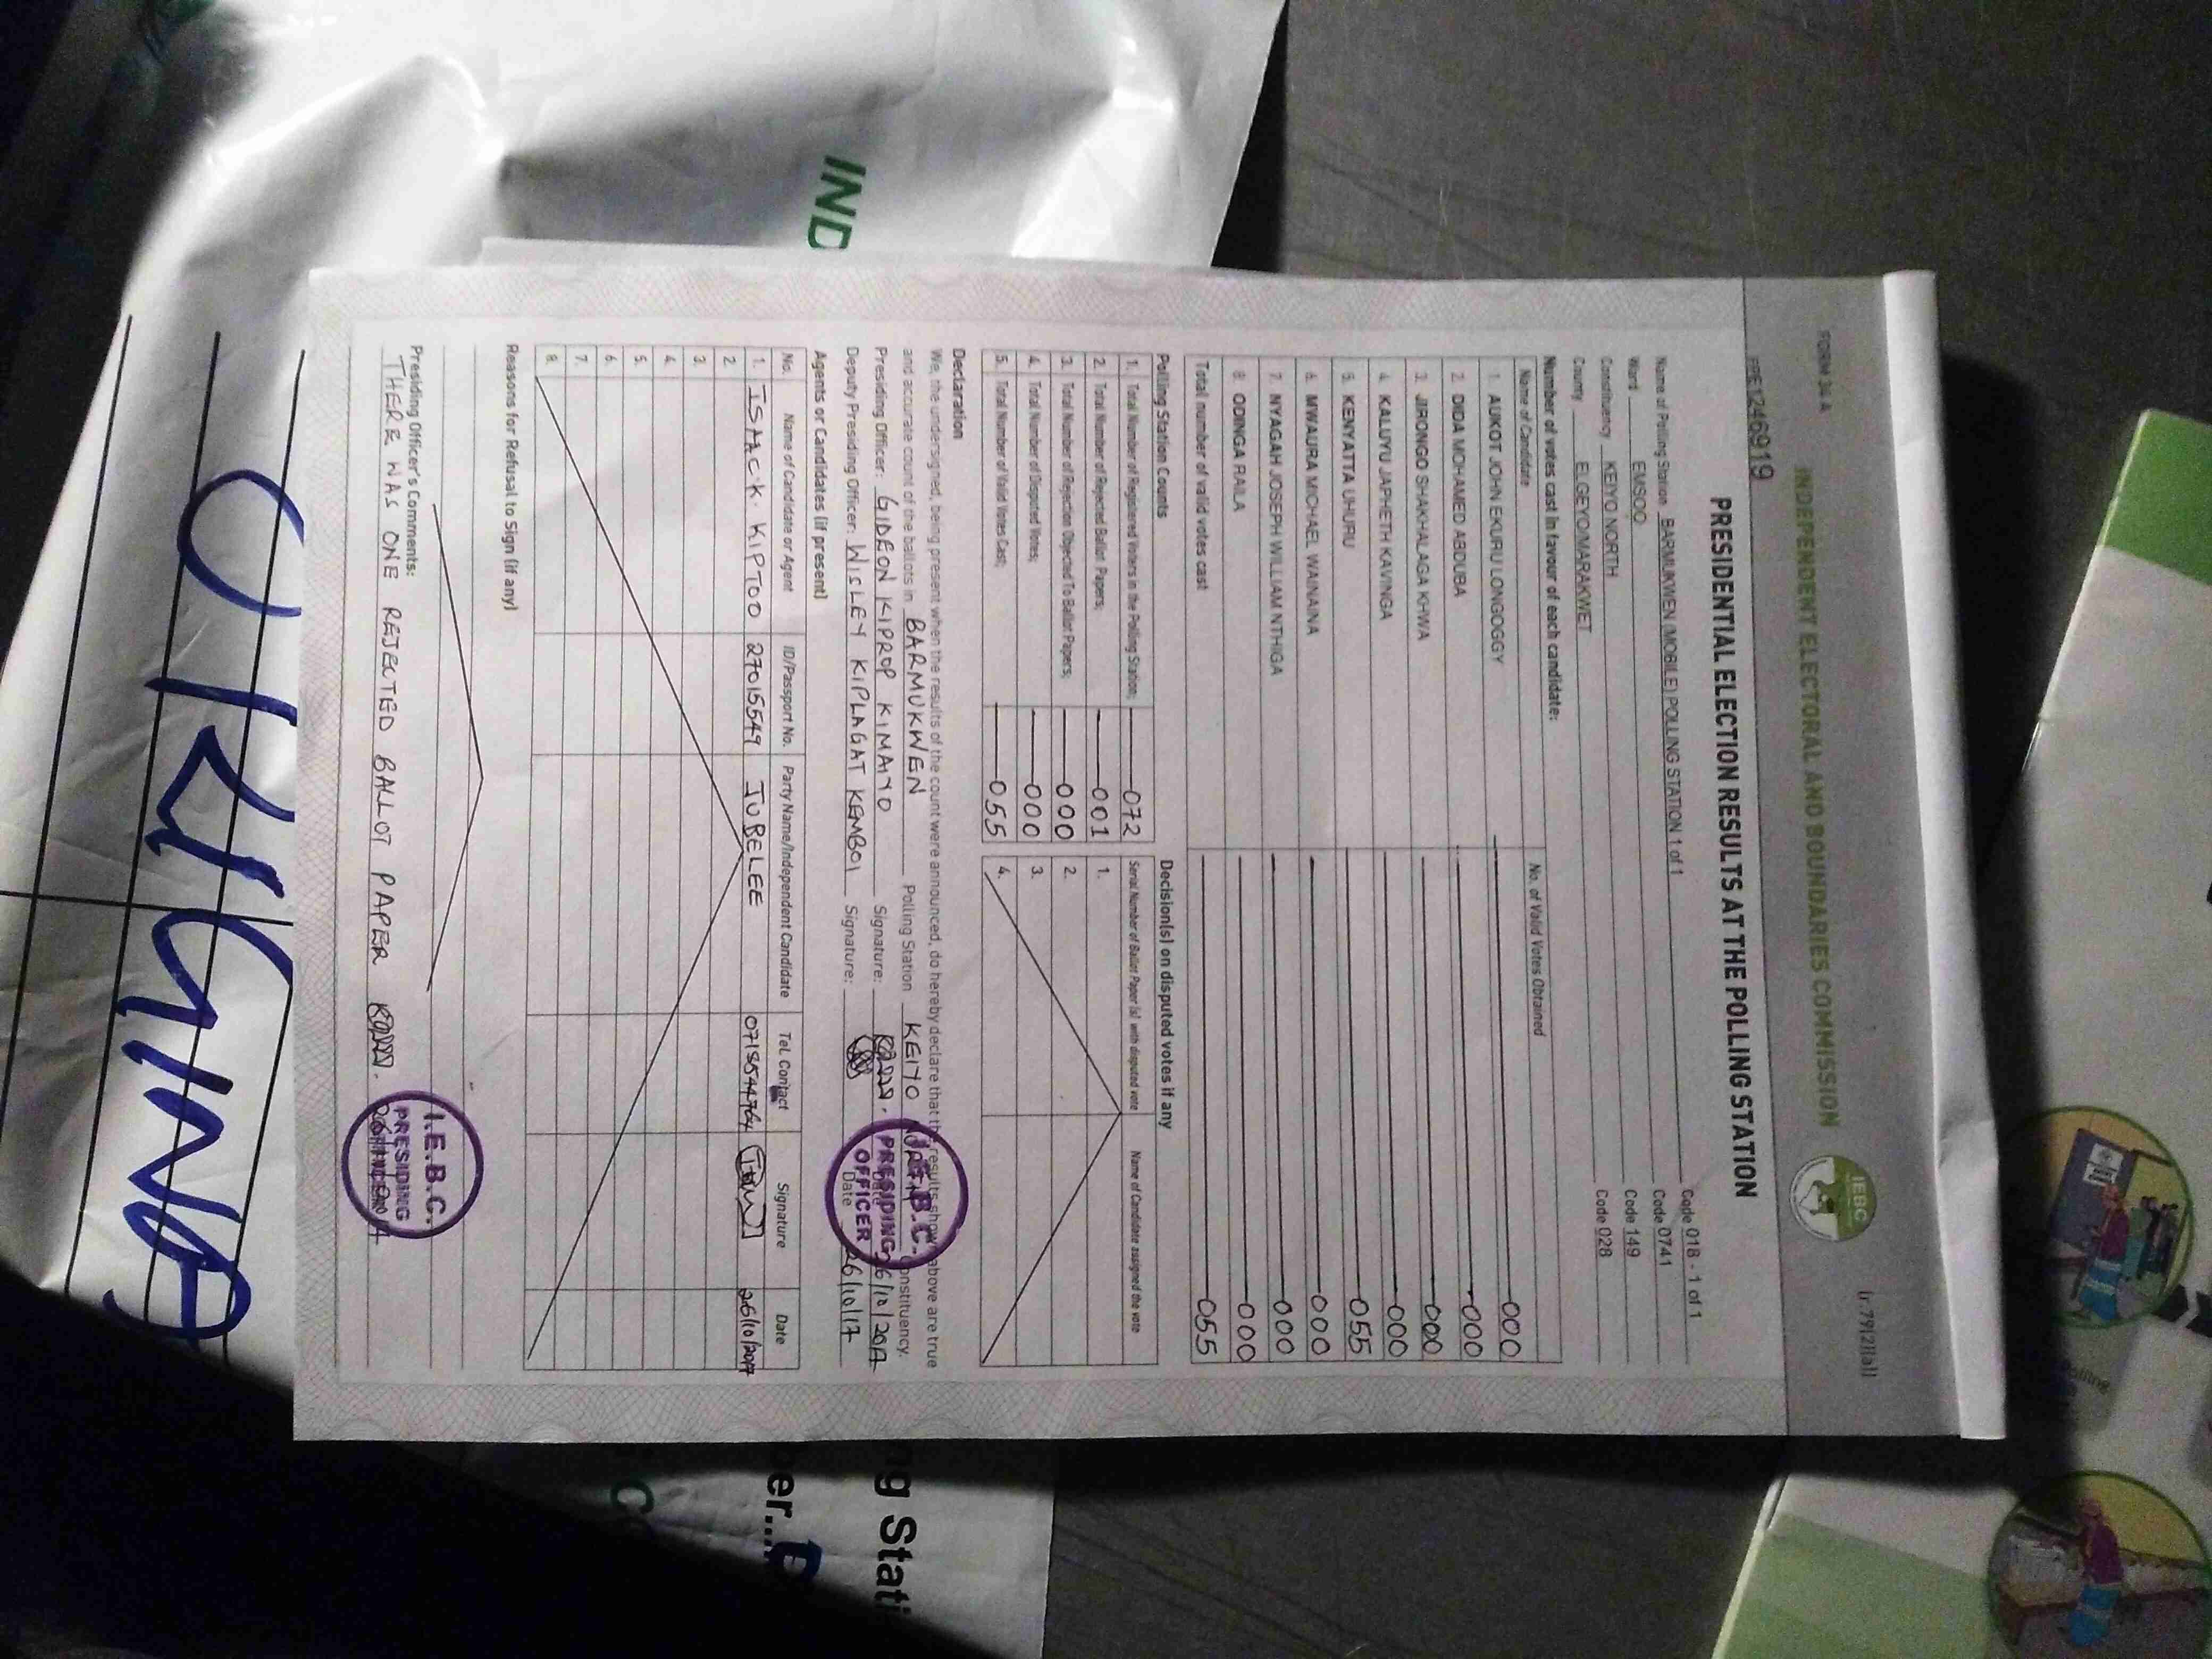 FORM 34 A
(r.79(2)(a))
INDEPENDENT ELECTORAL AND BOUNDARIES COMMISSION
IEBC
PRE1246919
PRESIDENTIAL ELECTION RESULTS AT THE POLLING STATION
Name of Polling Station BARMUKWEN (MOBILE) POLLING STATION 1 of 1 Code 018 - 1 of 1
Ward EMSOO Code 0741
Constituency KEIYO NORTH Code 149
County ELGEYO/MARAKWET Code 028
Number of votes cast in favour of each candidate:
Name of Candidate No. of Valid Votes Obtained
1. AUKOT JOHN EKURU LONGOGGY 000
2. DIDA MOHAMED ABDUBA 000
3. JIRONGO SHAKHALAGA KHWA 000
4. KALUYU JAPHETH KAVINGA 000
5. KENYATTA UHURU 055
6. MWAURA MICHAEL WAINAINA 000
7. NYAGAH JOSEPH WILLIAM NTHIGA 000
8. ODINGA RAILA 000
Total number of valid votes cast 055
Polling Station Counts
1. Total Number of Registered Voters in the Polling Station; 072
2. Total Number of Rejected Ballot Papers; 001
3. Total Number of Rejection Objected To Ballot Papers; 000
4. Total Number of Disputed Votes; 000
5. Total Number of Valid Votes Cast; 055
Decision(s) on disputed votes if any
Serial Number of Ballot Paper (s) with disputed vote Name of Candidate assigned the vote
1.
2.
3.
4.
Declaration
We, the undersigned, being present when the results of the count were announced, do hereby declare that the results show above are true
and accurate count of the ballots in BARMUKWEN Polling Station KEIYO NORTH Constituency.
Presiding Officer: GIDEON KIPROP KIMAIYO Signature: Date 26/10/2017
Deputy Presiding Officer: WISLEY KIPLAGAT KEMBOI Signature: Date 26/10/17
I.E.B.C.
PRESIDING
OFFICER
Agents or Candidates (if present)
No. Name of Candidate or Agent ID/Passport No. Party Name/Independent Candidate Tel. Contact Signature Date
1. ISAACK KIPTOO 27015549 JUBELEE 26/10/2017
2.
3.
4.
5.
6.
7.
8.
Reasons for Refusal to Sign (if any)
Presiding Officer's Comments:
THERE WAS ONE REJECTED BALLOT PAPER
I.E.B.C.
PRESIDING
IND
ORIGINA
ng Stati
ber....